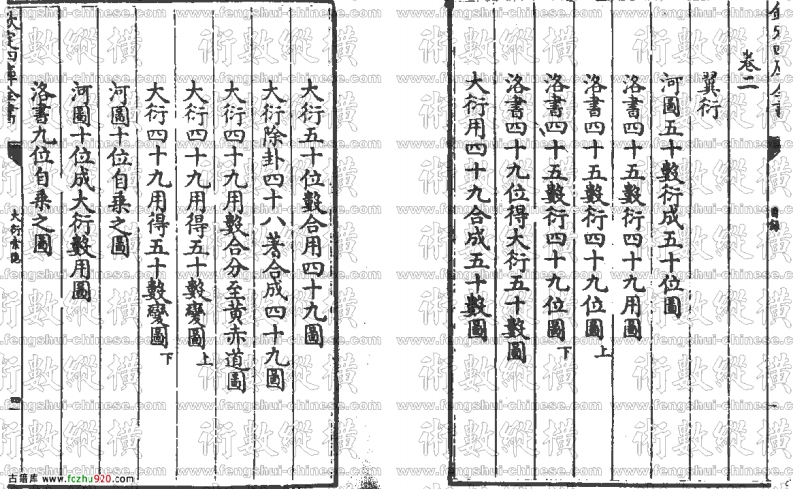 卷二
翼衍
河圖五十數衍成五十位圖
洛書四十五數衍四十九用圖
洛書四十五數衍四十九位圖上
洛書四十五數衍四十九位圖下
洛書四十九位得大衍五十數圖
大衍用四十九合成五十數圖
目錄
大衍五十位數合用四十九圖
大衍除卦四十八蓍合成四十九圖
大衍四十九用數合分至黃赤道圖
大衍四十九用得五十數變圖上
大衍四十九用得五十數變圖下
河圖十位自乘之圖
河圖十位成大衍數用圖
洛書九位自乘之圖
欽定四庫全書
術數縱橫
www.fengshui-chinese.com
古籍库 www.fczhu920.com